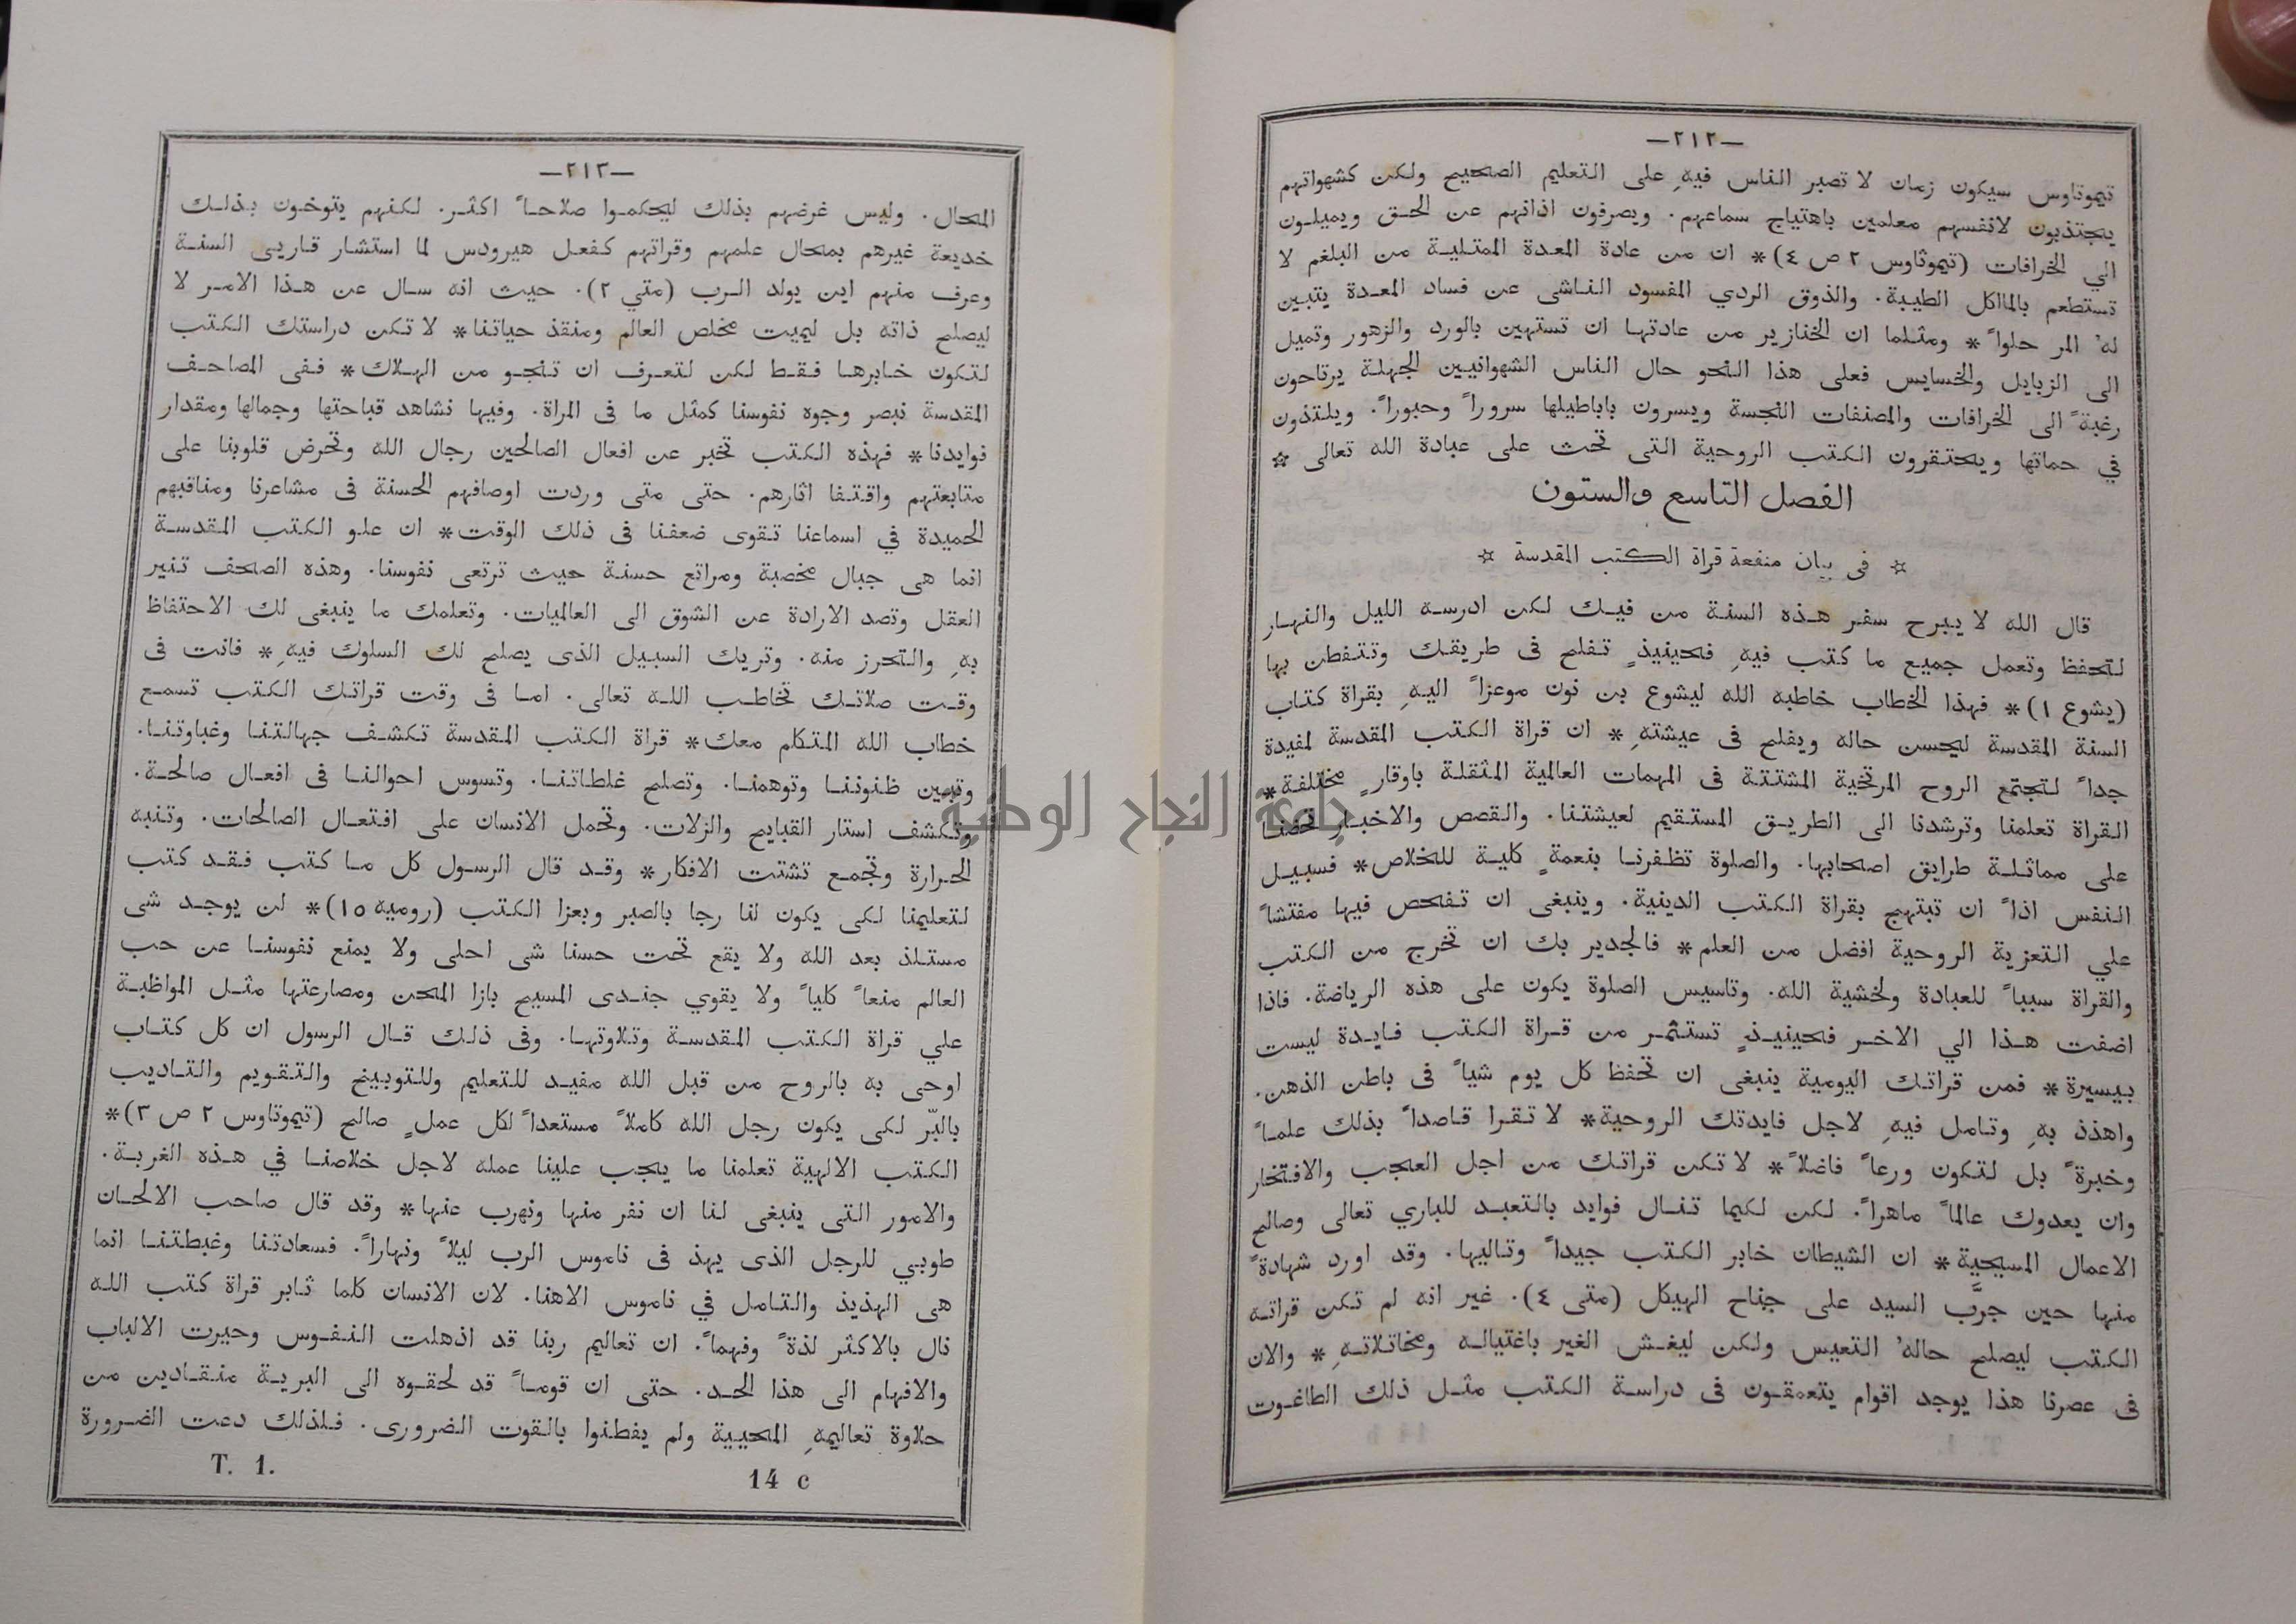 —٢١٢—
تيموتاوس سيكون زمان لا تصبر الناس فيهِ على التعليم الصحيح ولكن كشهواتهم
يجتذبون لانفسهم معلمين باهتياج سماعهم. ويصرفون اذانهم عن الحق ويميلون
الي الخرافات (تيموثاوس ٢ ص ٤)* ان من عادة المعدة الممتلية من البلغم لا
تستطعم بالمااكل الطيبة. والذوق الردي المفسود الناشى عن فساد المعدة يتبين
لهُ المر حلواً * ومثلما ان الخنازير من عادتها ان تستهين بالورد والزهور وتميل
الى الزبايل والخسايس فعلى هذا النحو حال الناس الشهوانيين الجهلة يرتاحون
رغبةً الى الخرافات والمصنفات النجسة ويسرون باباطيلها سروراً وحبوراً. ويلتذون
في حماتها ويحتقرون الكتب الروحية التى تحث على عبادة الله تعالى *
الفصل التاسع والستون
* فى بيان منفعة قراة الكتب المقدسة *
قال الله لا يبرح سفر هذه السنة من فيك لكن ادرسه الليل والنهار
لتحفظ وتعمل جميع ما كتب فيهِ فحينيذٍ تفلح فى طريقك وتتفطن بها
(يشوع ١)* فهذا الخطاب خاطبه الله ليشوع بن نون موعزاً اليهِ بقراة كتاب
السنة المقدسة ليحسن حاله ويفلح فى عيشتهِ* ان قراة الكتب المقدسة لمفيدة
جداً لتجتمع الروح المرتخية المشتتة فى المهمات العالمية المثقلة باوقارٍ مختلفة*
القراة تعلمنا وترشدنا الى الطريق المستقيم لعيشتنا. والقصص والاخبار تحضنا
على مماثلة طرايق اصحابها. والصلوة تظفرنا بنعمةٍ كلية للخلاص* فسبيل
النفس اذاً ان تبتهج بقراة الكتب الدينية. وينبغى ان تفحص فيها مفتشاً
علي التعزية الروحية افضل من العلم* فالجدير بك ان تخرج من الكتب
والقراة سبباً للعبادة ولخشية الله. وتاسيس الصلوة يكون على هذه الرياضة. فاذا
اضفت هذا الي الاخر فحينيذٍ تستثمر من قراة الكتب فايدة ليست
بيسيرة* فمن قراتك اليومية ينبغى ان تحفظ كل يوم شياً فى باطن الذهن.
واهذذ بهِ وتامل فيهِ لاجل فايدتك الروحية* لا تقرا قاصداً بذلك علماً
وخبرةً بل لتكون ورعاً فاضلاً* لا تكن قراتك من اجل العجب والافتخار
وان يعدوك عالماً ماهراً. لكن لكيما تنال فوايد بالتعبد للباري تعالى وصالح
الاعمال المسيحية* ان الشيطان خابر الكتب جيداً وتاليها. وقد اورد شهادةً
منها حين جرَّب السيد على جناح الهيكل (متى ٤). غير انه لم تكن قراته
الكتب ليصلح حالهُ التعيس ولكن ليغش الغير باغتياله ومخاتلاتهِ* والان
فى عصرنا هذا يوجد اقوام يتعمقون فى دراسة الكتب مثل ذلك الطاغوت
—٢١٣—
المحال. وليس غرضهم بذلك ليحكموا صلاحاً اكثر. لكنهم يتوخون بذلك
خديعة غيرهم بمحال علمهم وقراتهم كفعل هيرودس لما استشار قاريى السنة
وعرف منهم اين يولد الرب (متي ٢). حيث انه سال عن هذا الامر لا
ليصلح ذاته بل ليميت مخلص العالم ومنقذ حياتنا* لا تكن دراستك الكتب
لتكون خابرها فقط لكن لتعرف ان تنجو من الهلاك* ففى المصاحف
المقدسة نبصر وجوه نفوسنا كمثل ما فى المراة. وفيها نشاهد قباحتها وجمالها ومقدار
فوايدنا* فهذه الكتب تخبر عن افعال الصالحين رجال الله وتحرض قلوبنا على
متابعتهم واقتفا اثارهم. حتى متى وردت اوصافهم الحسنة فى مشاعرنا ومناقبهم
الحميدة في اسماعنا تقوى ضعفنا فى ذلك الوقت* ان علو الكتب المقدسة
انما هى جبال مخصبة ومراتع حسنة حيث ترتعى نفوسنا. وهذه الصحف تنير
العقل وتصد الارادة عن الشوق الى العالميات. وتعلمك ما ينبغى لك الاحتفاظ
بهِ والتحرز منه. وتريك السبيل الذى يصلح لك السلوك فيهِ* فانت فى
وقت صلاتك تخاطب الله تعالى. اما فى وقت قراتك الكتب تسمع
خطاب الله المتكلم معك* قراة الكتب المقدسة تكشف جهالتنا وغباوتنا.
وتبين ظنوننا وتوهمنا. وتصلح غلطاتنا. وتسوس احوالنا فى افعال صالحة.
وتكشف استار القبايح والزلات. وتحمل الانسان على افتعال الصالحات. وتنبه
الحرارة وتجمع تشتت الافكار* وقد قال الرسول كل ما كتب فقد كتب
لتعليمنا لكى يكون لنا رجا بالصبر وبعزا الكتب (روميه ١٥)* لن يوجد شى
مستلذ بعد الله ولا يقع تحت حسنا شى احلى ولا يمنع نفوسنا عن حب
العالم منعاً كلياً ولا يقوي جندى المسيح بازا المحن ومصارعتها مثل المواظبة
علي قراة الكتب المقدسة وتلاوتها. وفى ذلك قال الرسول ان كل كتاب
اوحى به بالروح من قبل الله مفيد للتعليم وللتوبيخ والتقويم والتاديب
بالبّر لكى يكون رجل الله كاملاً مستعداً لكل عملٍ صالح (تيموتاوس ٢ ص ٣)*
الكتب الالهية تعلمنا ما يجب علينا عمله لاجل خلاصنا في هذه الغربة.
والامور التى ينبغى لنا ان نفر منها ونهرب عنها* وقد قال صاحب الالحان
طوبي للرجل الذى يهذ فى ناموس الرب ليلاً ونهاراً. فسعادتنا وغبطتنا انما
هى الهذيذ والتامل في ناموس الاهنا. لان الانسان كلما ثابر قراة كتب الله
نال بالاكثر لذةً وفهماً. ان تعاليم ربنا قد اذهلت النفوس وحيرت الالباب
والافهام الى هذا الحد. حتى ان قوماً قد لحقوه الى البرية منقادين من
حلاوة تعاليمهِ المحيية ولم يفطنوا بالقوت الضرورى. فلذلك دعت الضرورة
T. 1. 14 c
جامعة النجاح الوطنية